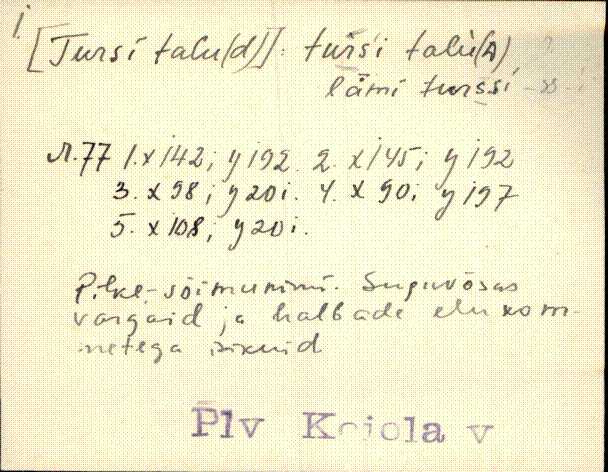 1.
[Tursi talu(d)]: turs̀i talù(A)
lämi turs̀si
Л.77 1. x 142; y 192. 2. x 145; y 192
3. x 98; y 201. 4. x 90; y 197
5. x 108; y 201.
Pilke-sõimunimi. Suguvõsas
vargaid ja halbade elukom-
metega isikuid
Plv Kojola v